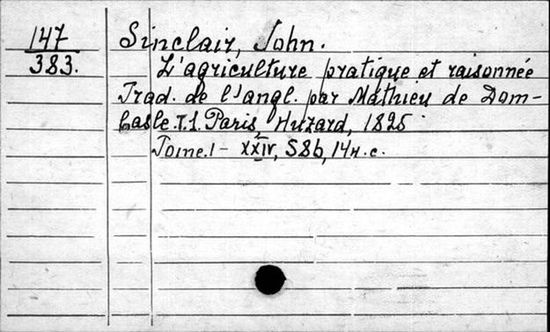 147
383.
Sinclair, John.
L'agriculture pratique et raisonnée
Trad. de l'angl. par Mathieu de Dom-
basle. T.1. Paris, Huzard, 1825.
Tome.1 - XXIV, 586, 14 н. с.